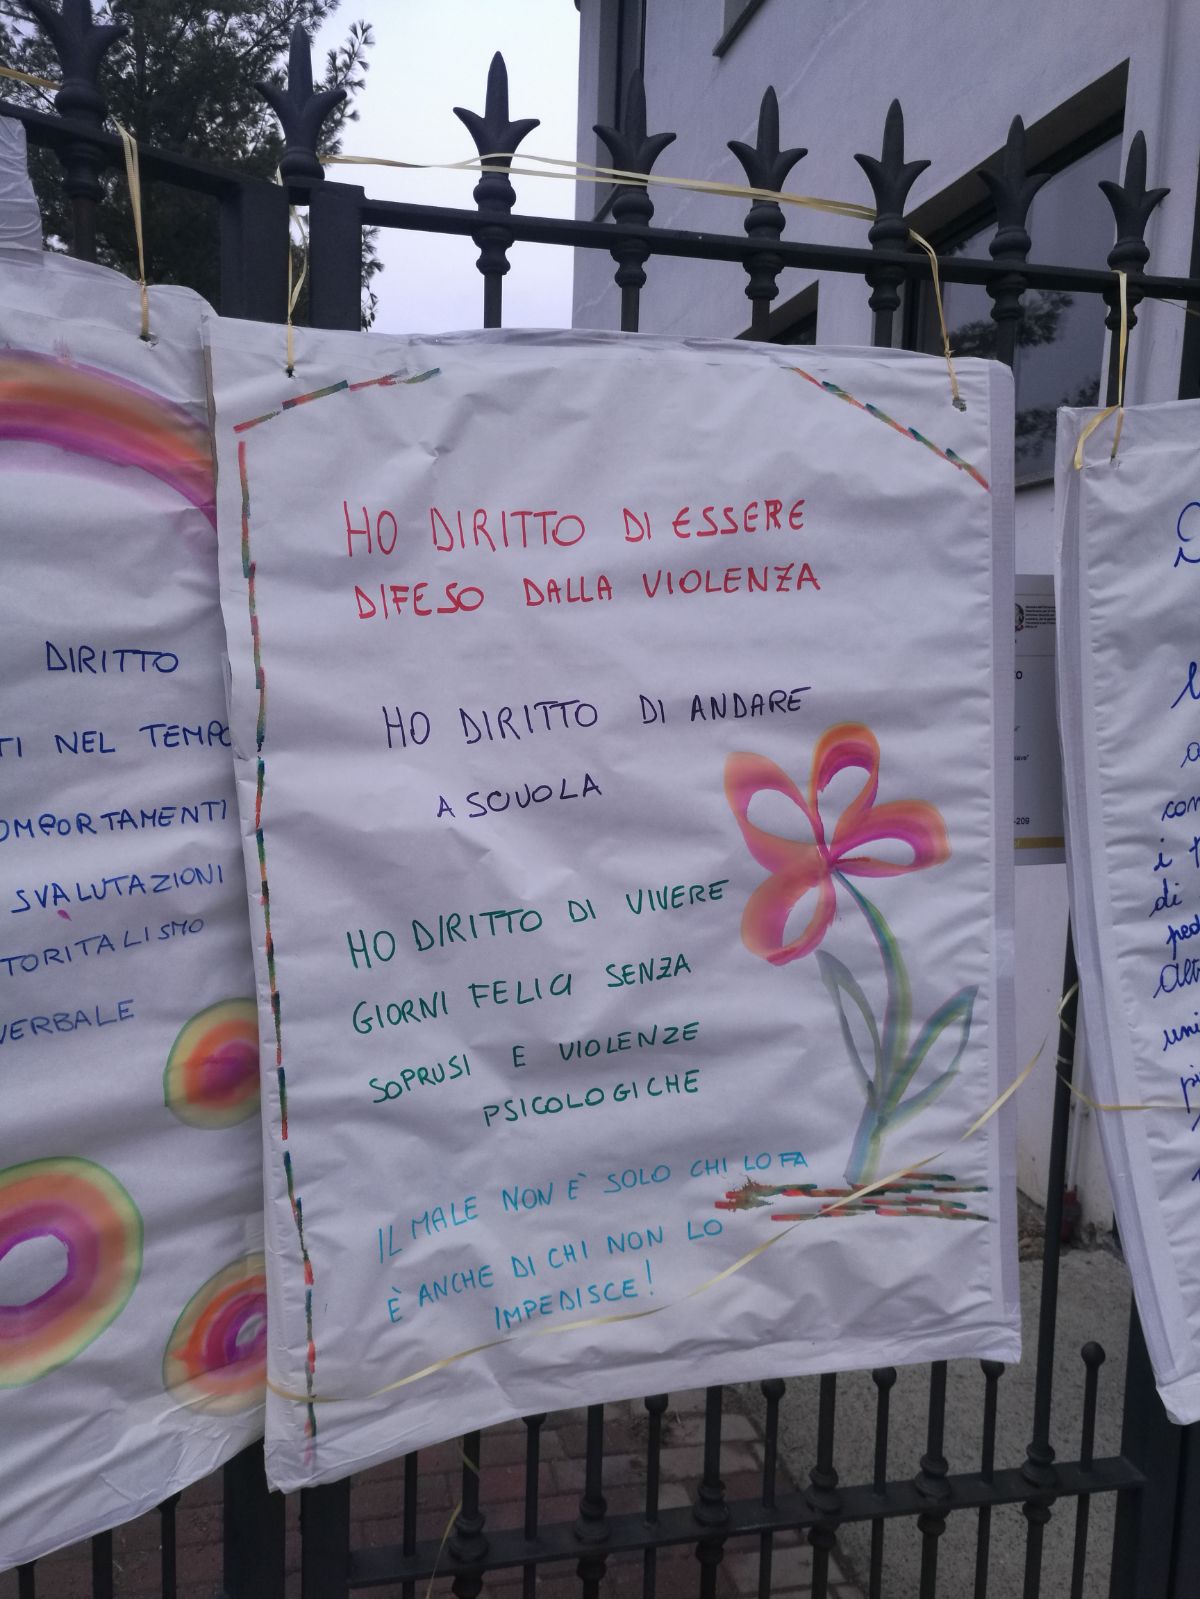 DIRITTO
TI NEL TEMPO
OMPORTAMENTI
SVALUTAZIONI
TORITALISMO
VERBALE
HO DIRITTO DI ESSERE
DIFESO DALLA VIOLENZA
HO DIRITTO DI ANDARE
A SCUOLA
HO DIRITTO DI VIVERE
GIORNI FELICI SENZA
SOPRUSI E VIOLENZE
PSICOLOGICHE
IL MALE NON È SOLO CHI LO FA
È ANCHE DI CHI NON LO
IMPEDISCE!
-209
con
i
di
ped
alt
uni